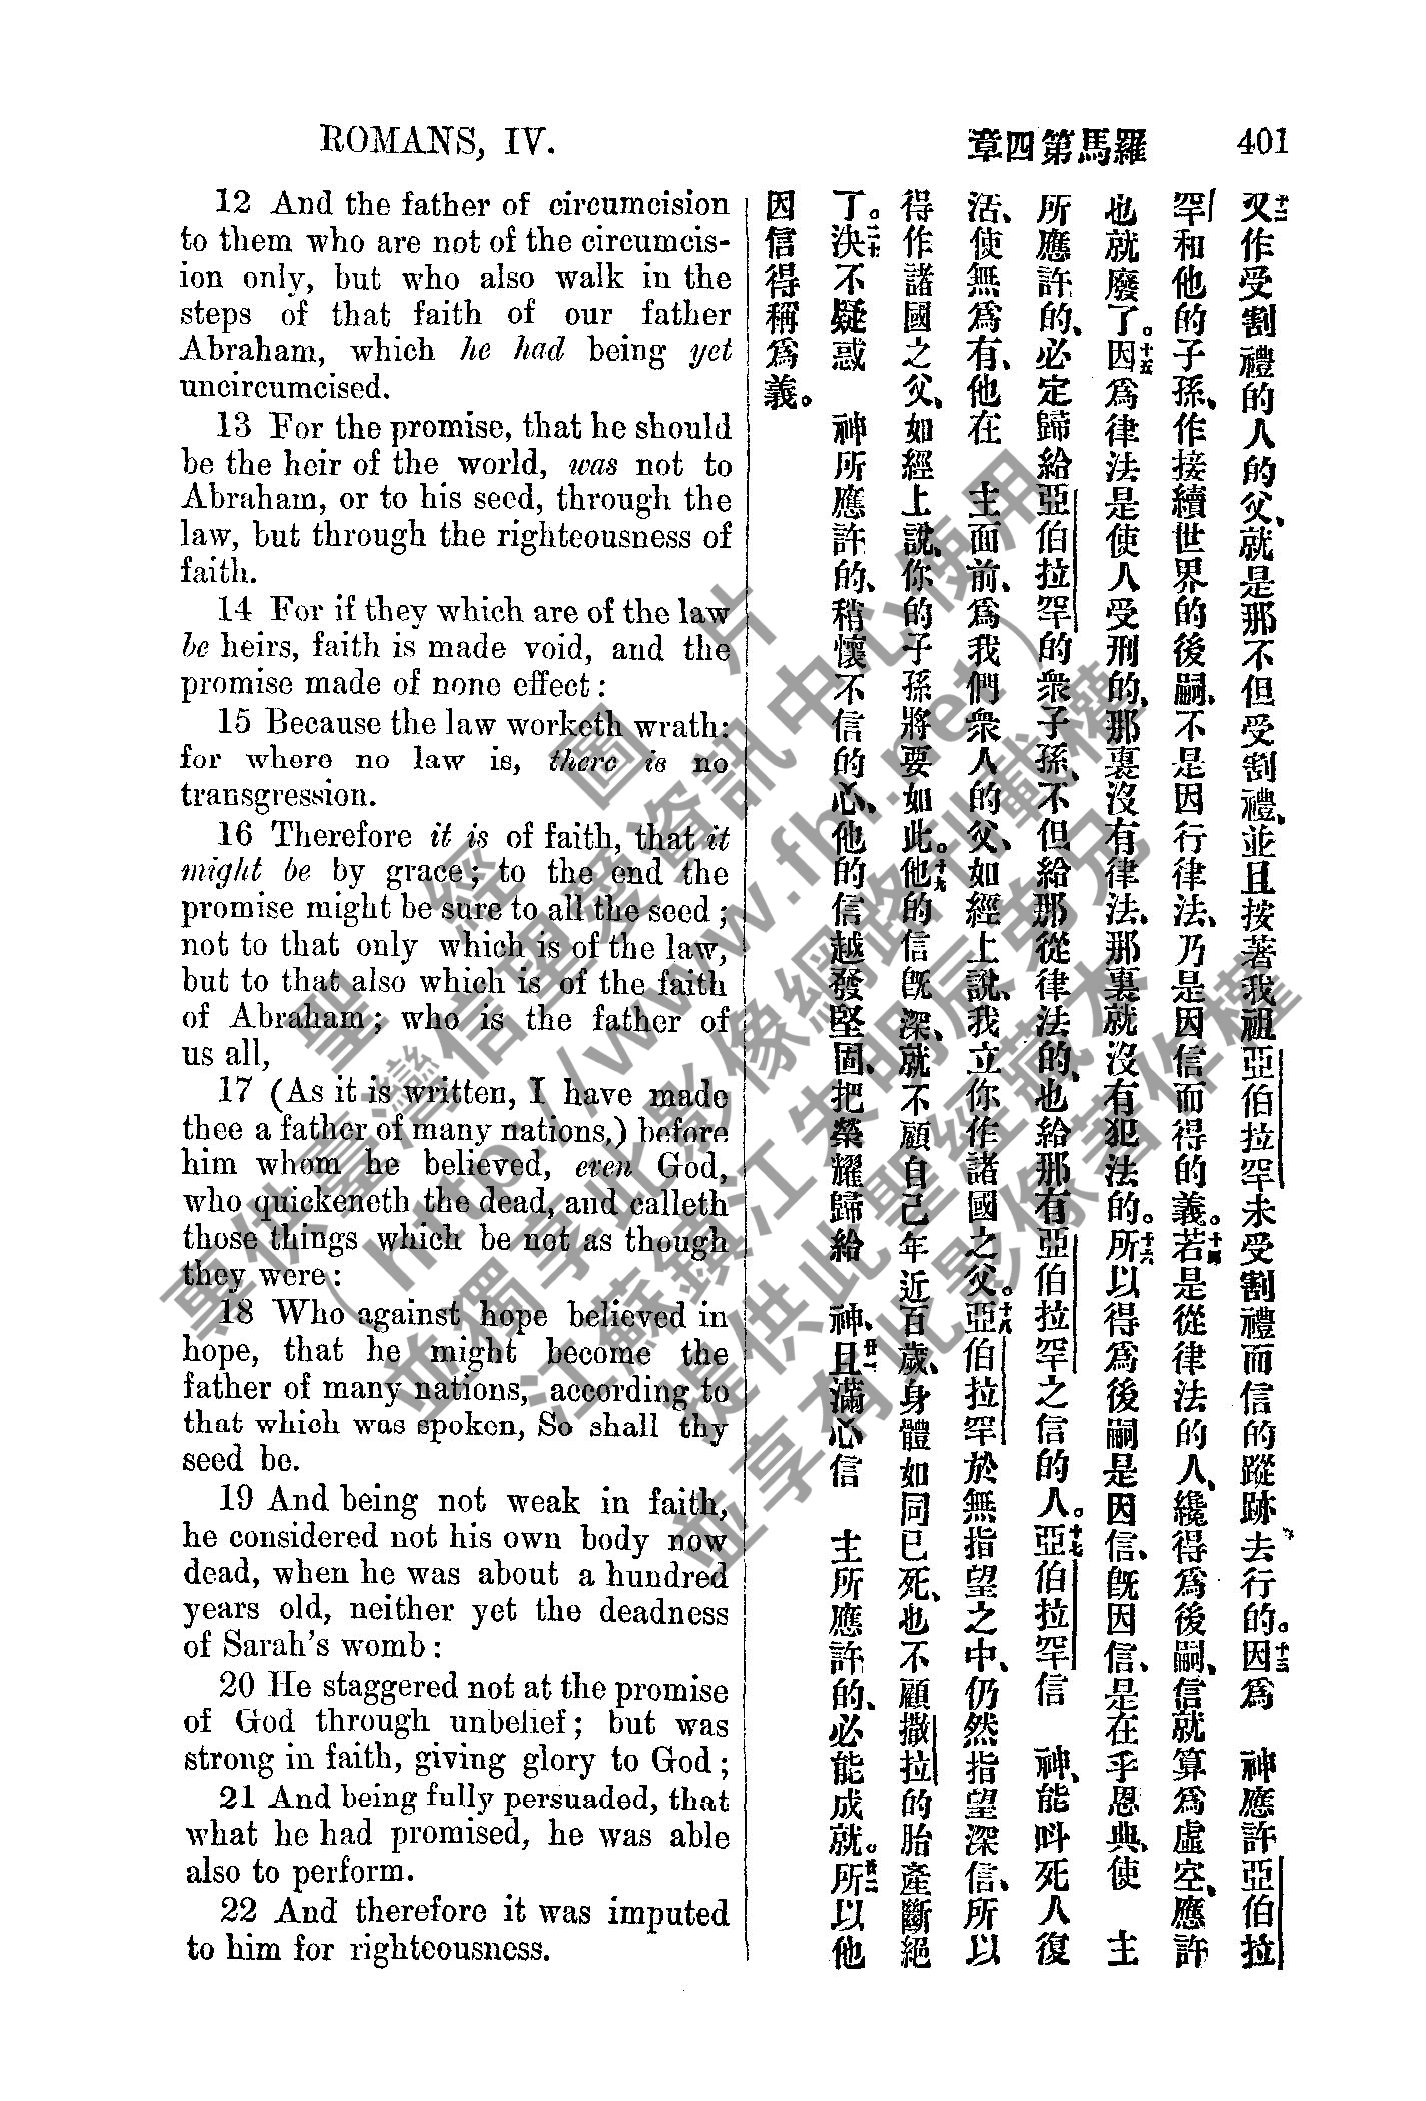 ROMANS, IV.
羅馬第四章
401
12 And the father of circumcision
to them who are not of the circumcis-
ion only, but who also walk in the
steps of that faith of our father
Abraham, which he had being yet
uncircumcised.
13 For the promise, that he should
be the heir of the world, was not to
Abraham, or to his seed, through the
law, but through the righteousness of
faith.
14 For if they which are of the law
be heirs, faith is made void, and the
promise made of none effect:
15 Because the law worketh wrath:
for where no law is, there is no
transgression.
16 Therefore it is of faith, that it
might be by grace; to the end the
promise might be sure to all the seed;
not to that only which is of the law,
but to that also which is of the faith
of Abraham; who is the father of
us all,
17 (As it is written, I have made
thee a father of many nations,) before
him whom he believed, even God,
who quickeneth the dead, and calleth
those things which be not as though
they were:
18 Who against hope believed in
hope, that he might become the
father of many nations, according to
that which was spoken, So shall thy
seed be.
19 And being not weak in faith,
he considered not his own body now
dead, when he was about a hundred
years old, neither yet the deadness
of Sarah's womb:
20 He staggered not at the promise
of God through unbelief; but was
strong in faith, giving glory to God;
21 And being fully persuaded, that
what he had promised, he was able
also to perform.
22 And therefore it was imputed
to him for righteousness.
十二又作受割禮的人的父、就是那不但受割禮、並且按著我祖亞伯拉罕未受割禮而信的蹤跡去行的。十三因爲 神應許亞伯拉
罕和他的子孫、作接續世界的後嗣、不是因行律法、乃是因信而得的義。十四若是從律法的人、纔得爲後嗣、信就算爲虛空、應許
也就廢了。十五因爲律法是使人受刑的、那裏沒有律法、那裏就沒有犯法的。十六所以得爲後嗣是因信、旣因信、是在乎恩典、使 主
所應許的、必定歸給亞伯拉罕的衆子孫、不但給那從律法的、也給那有亞伯拉罕之信的人。十七亞伯拉罕信 神、能叫死人復
活、使無爲有、他在 主面前、爲我們衆人的父、如經上說、我立你作諸國之父。十八亞伯拉罕於無指望之中、仍然指望深信、所以
得作諸國之父、如經上說、你的子孫將要如此。十九他的信旣深、就不顧自己年近百歲、身體如同已死、也不顧撒拉的胎產斷絕
了。二十決不疑惑 神所應許的、稍懷不信的心、他的信越發堅固、把榮耀歸給 神、廿一且滿心信 主所應許的、必能成就。廿二所以他
因信得稱爲義。
聖經圖片
專供臺灣信望愛資訊中心使用
（http://www.fhl.net）
並獨享此影像網路刊載權
江蘇鎮江朱明辰弟兄
提供此聖經藏本
並享有此影像著作權